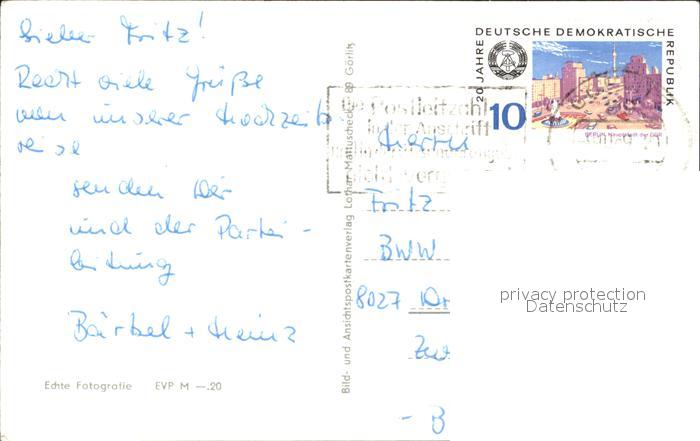 Lieber Fritz!
Recht viele Grüße
von unserer Hochzeits-
reise
senden Dir
und der Partei-
leitung
Bärbel + Heinz
Echte Fotografie EVP M —.20
Bild- und Ansichtspostkartenverlag Lothar Mattuscheck, 89 Görlitz
20 JAHRE DEUTSCHE DEMOKRATISCHE REPUBLIK
10
BERLIN, Hauptstadt der DDR
Die Postleitzahl
in der Anschrift
nicht
Fritz
BWW
8027 Dr
- B
privacy protection
Datenschutz